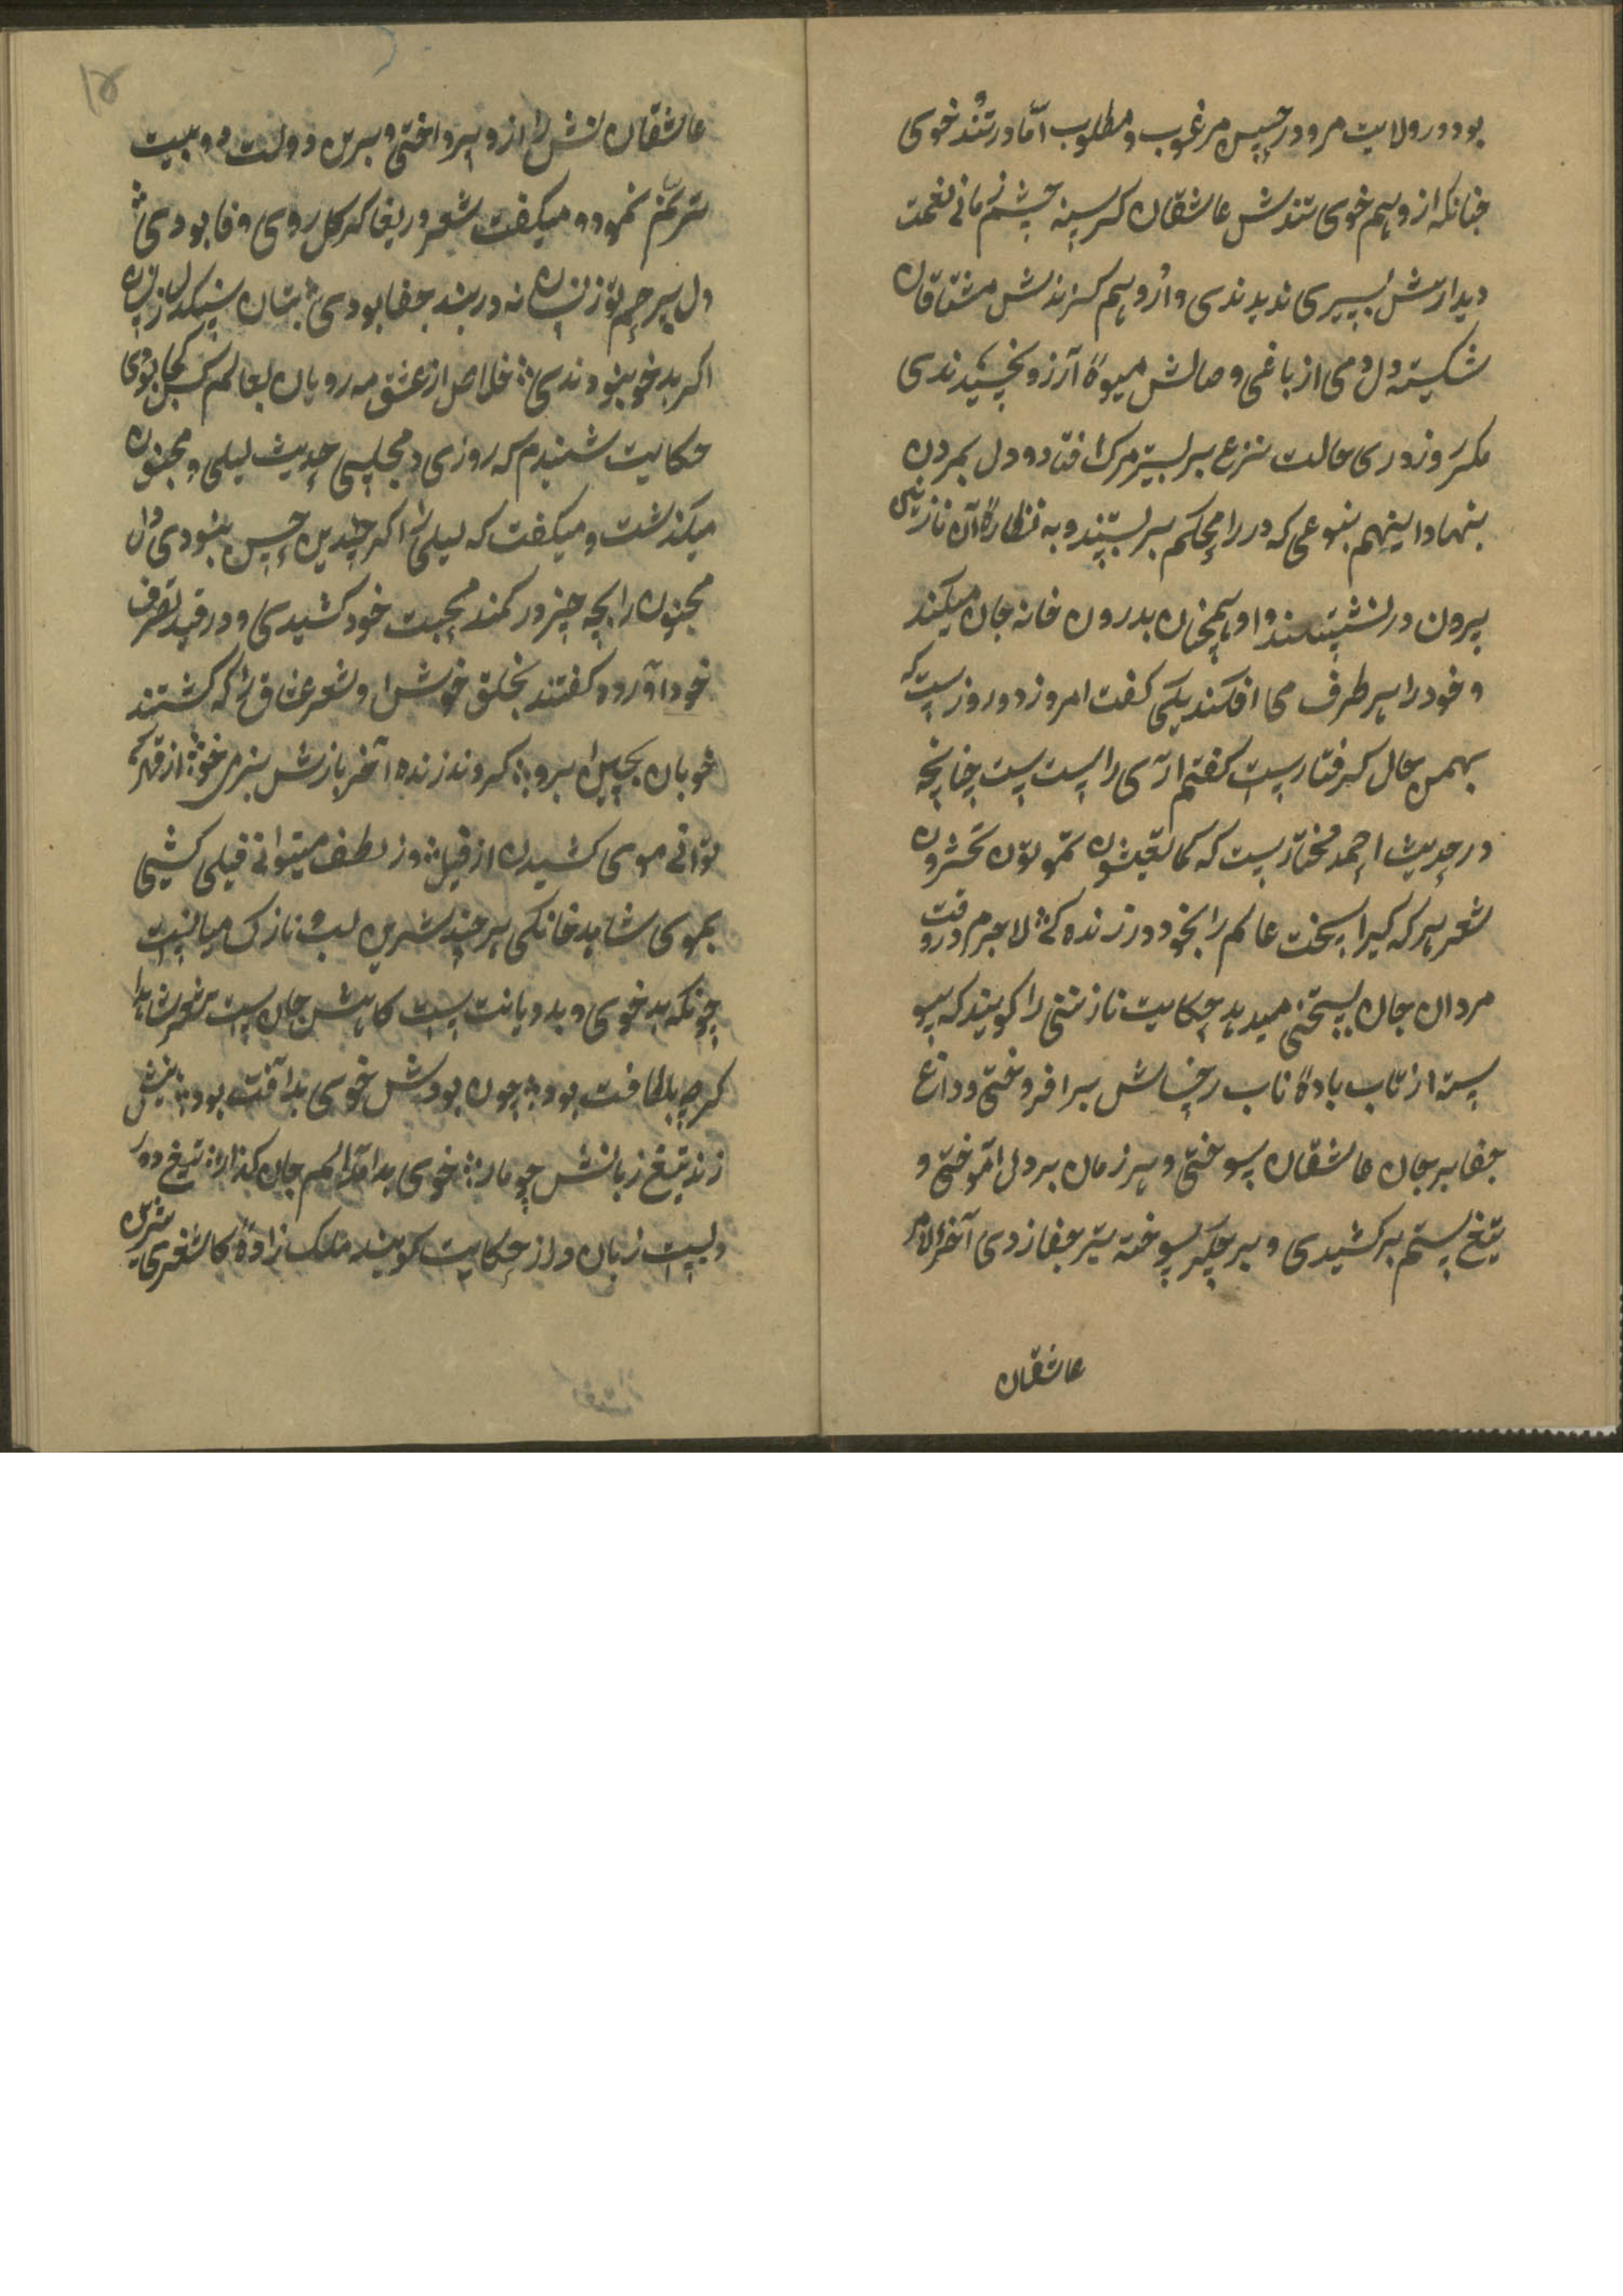 بود در ولایت مرو در حسن مرغوب و مطلوب امّا در تُند خوی
چنانکه از وهم خوی تندش عاشقان کرسنه چشم زمانی نعمت
دیدارش بسیری ندیدندی و از وهم کزندش مشتاقان
شکسته دل دمی از باغی وصالش میوهٔ آرزو نچیدندی
مکر روزدری حالت نزع بر بستر مرک افتاد و دل بمردن
بنهاد اینهم بنوعی که در را محکم بربستند و به نظارهٔ آن نازنین
بیرون در نشستند و او همچنان بدرون خانه جان میکند
و خود را هر طرف می افکند یکی کفت امروز دو روزست که
بهمین حال کرفتارست کفتم آری راست است چنانچه
در حدیث احمد مختارست که کما تعیشون تموتون تحشرون
شعر هر که کیرا سخت عالم را بخود در زنده کی لاجرم در وقت
مردان جان بسختی میدهد حکایت نازنینی را کویند که پیو
سته از تاب بادهٔ ناب رخسارش برافروختی و داغ
جفا بر جان عاشقان سوختی و هر زمان بر دل اندوختی و
تیغ ستم برکشیدی و بر جکر سوخته تیر جفا زدی آخر الامر
عاشقان
۱۵
عاشقانش از و بپرداختی و برین دولت دو بیت
ترنّم نمود و میکفت شعر دریغا کر کل روی وفا بودی
دل بیرحم تو زینسان نه در بند جفا بودی بتان سنکدل زینسان
اکر بدخو نبودندی خلاص از عشق مه رویان بعالم کس کجا بودی
حکایت شنیدم که روزی در مجلسی حدیث لیلی و مجنون
میکذشت و میکفت که لیلی را اکر چندین حسن نبودی دل
مجنون را بچه چیز در کمند محبت خود کشیدی و در قید تصرف
خود آوردد کفتند بخلق خوش او شعر عشاق را که کشتند
خوبان بچین ابرو کردند زنده آخر بازش بنرمی خو از قهر که
توانی موی کشیدن از فیل وز لطف میتوانی فیلی کشی
بموی شاهد خانکی هر چند شیرین لب و نازک میانست
چونکه بدخوی و بد دیانت است کاهش جان است شعر شاهد
کرچه بلطافت بود چون بودش خوی بد آفت بود نیش
زند تیغ زبانش چو مار خوی بد الم جان کذار تیغ دور
ویست زبان دراز حکایت کویند ملک زادهٔ کاشغری شیرین